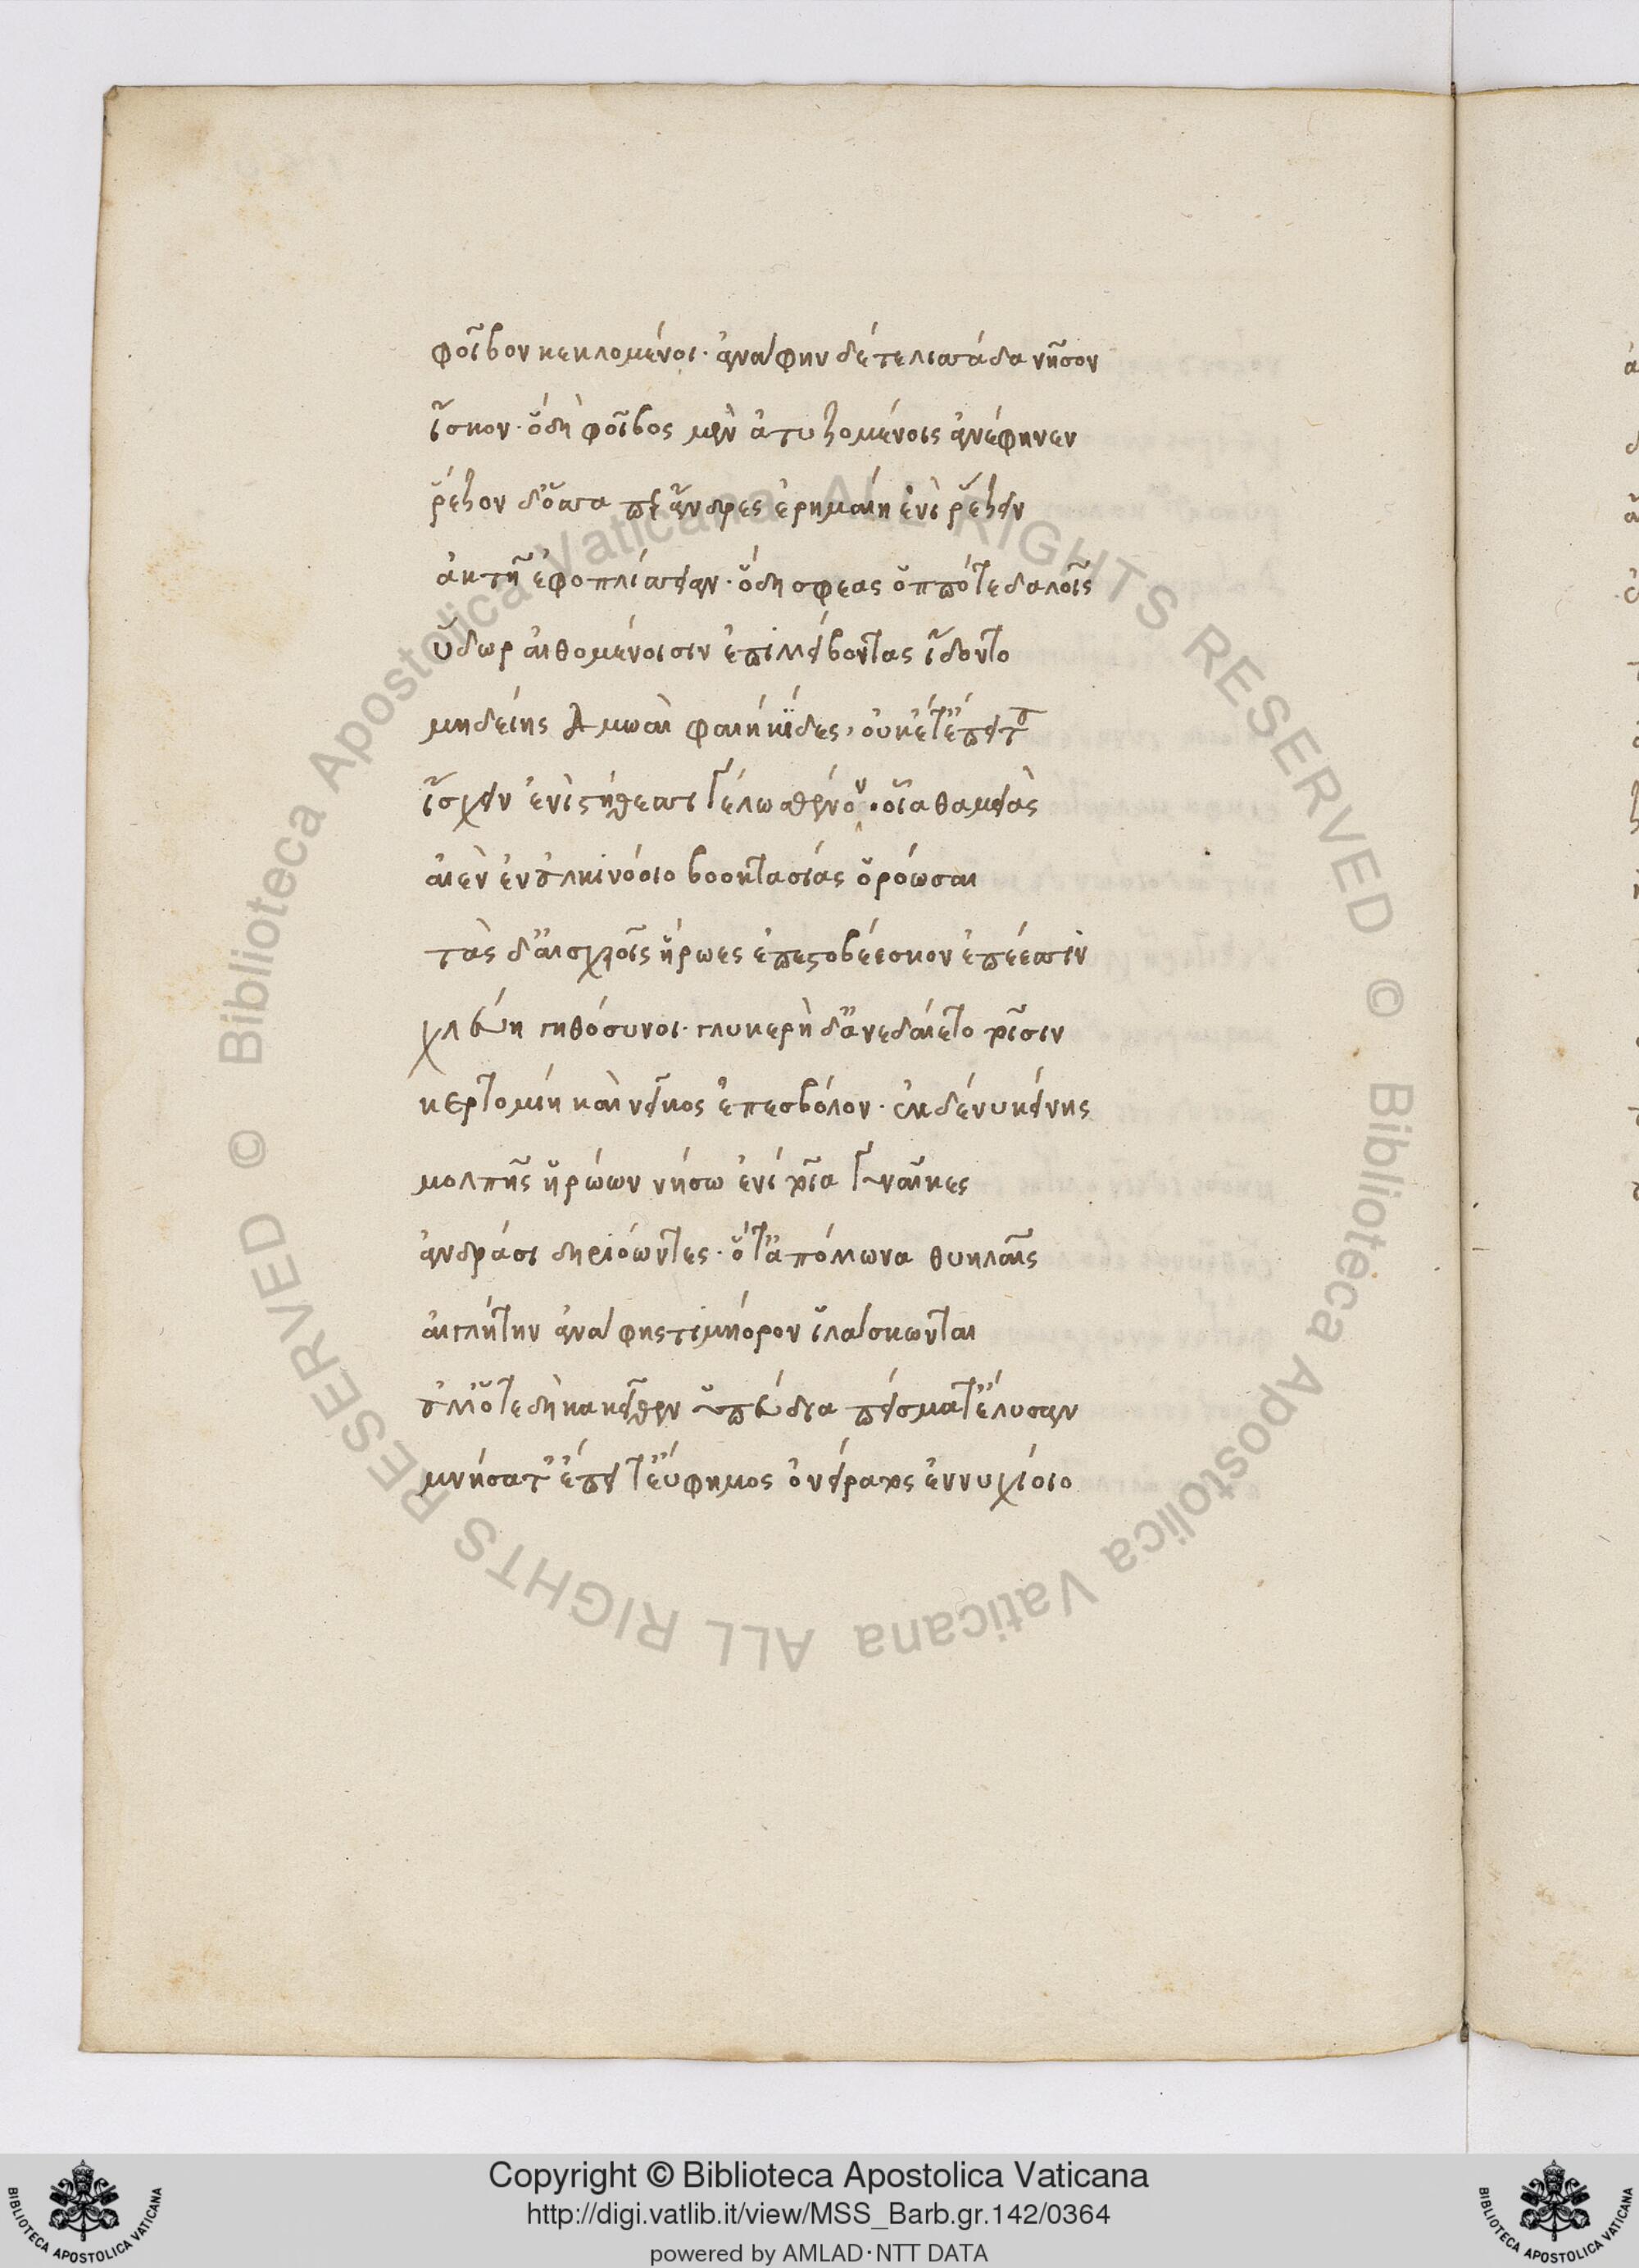 φοῖβον κεκλομένοι· ἀνάφην δέ τε λισσάδα νῆσον
ἴσκον· ὃ δὴ φοῖβος μὲν ἀτυζομένοις ἀνέφηνεν
ῥέζον δ' ὅσσα περ ἄνδρες ἐρημαίη ἐνὶ ῥέζειν
ἀκτῇ ἐφοπλίσσειαν· ὃ δή σφεας ὁππότε δαλοῖς
ὕδωρ αἰθομένοισιν ἐπιλλείβοντας ἴδοντο
μηδείης δμωαὶ φαιηκίδες, οὐκέτ' ἔπειτα
ἴσχειν ἐνὶ στήθεσσι γέλω σθένον· οἷα θαμειὰς
αἰὲν ἐν ἀλκινόοιο βοοκτασίας ὁρόωσαι
τὰς δ' αἰσχροῖς ἥρωες ἐπεστοβέεσκον ἐπέεσσιν
χλεύη γηθόσυνοι· γλυκερὴ δ' ἀνεδαίετο τοῖσιν
κερτομίη καὶ νεῖκος ἐπεσβόλον· ἐκ δέ νυ κείνης
μολπῆς ἡρώων νήσω ἐνὶ τοῖα γυναῖκες
ἀνδράσι δηριόωντες· ὅτ' ἀπόλλωνα θυηλαῖς
αἰγλήτην ἀνάφης τιμήορον ἱλάσκωνται
ἀλλ' ὅτε δὴ κακεῖθεν ὑπεύδια πείσματ' ἔλυσαν
μνήσατ' ἔπειτ' εὔφημος ὀνείρατος ἐννυχίοιο
Copyright © Biblioteca Apostolica Vaticana
http://digi.vatlib.it/view/MSS_Barb.gr.142/0364
powered by AMLAD·NTT DATA